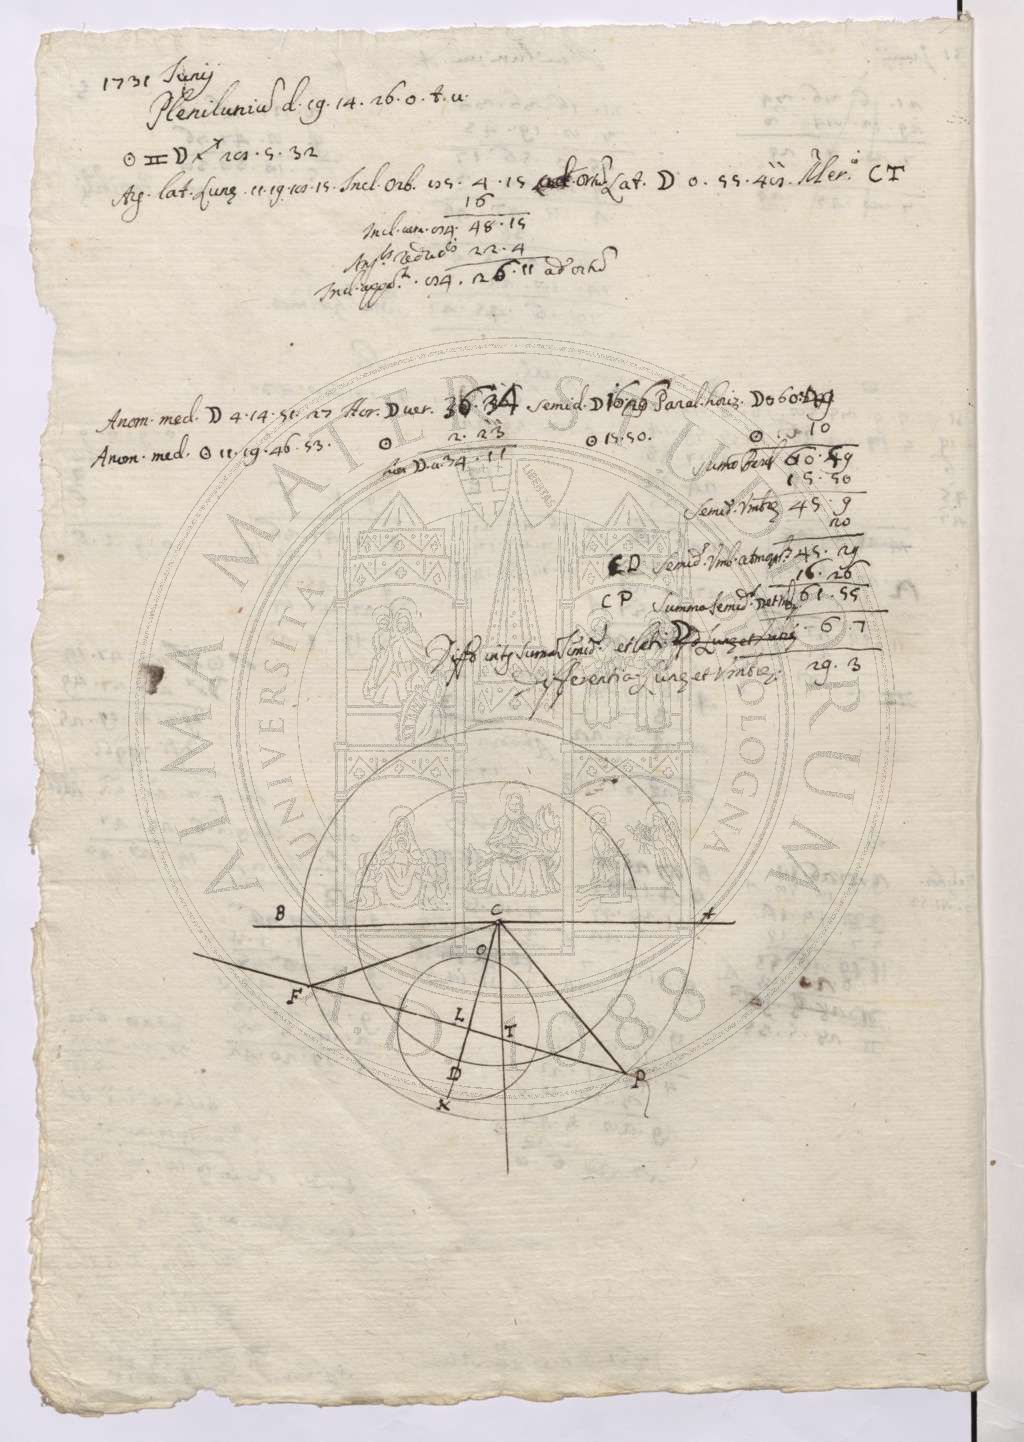 1731 Junij
Plenilunium d. 19. 14. 26. 0. t. v.
☉ ♊ ☽ ♐ 28. 5. 32
Arg. lat. Lunæ. 11. 19. 15. Incl. Orb. 85. 4. 15 Lat. ☽ 0. 55. 48. Mer. CT
16
Incl. cum. 84. 48. 15
22. 4
Incl. appar. 84. 26. 11 ad ort
Anom. med. ☽ 4. 14. 51. 27 Hor. ☽ ver. 36. 34 Semid. ☽ 16. 26 Paral. horiz. ☽ 0 60. 49
Anom. med. ☉ 11. 19. 46. 53. ☉ 2. 23 ☉ 15. 50. ☉ 10
hor ☽ a ☉ 34. 11 Summa 60. 59
15. 50
Semid. Umbræ 45. 9
20
CD Semid. Umb. atmosph. 45. 29
16. 26
CP Summa Semid. 61. 55
Diffa inter Summam Semid. et lat. ☽ 6. 7
Differentia Lunæ et Umbræ. 29. 3
B C A
O
F
L T
D P
K
ALMA MATER STUDIORUM
UNIVERSITÀ DI BOLOGNA
LIBERTAS
A.D. 1088